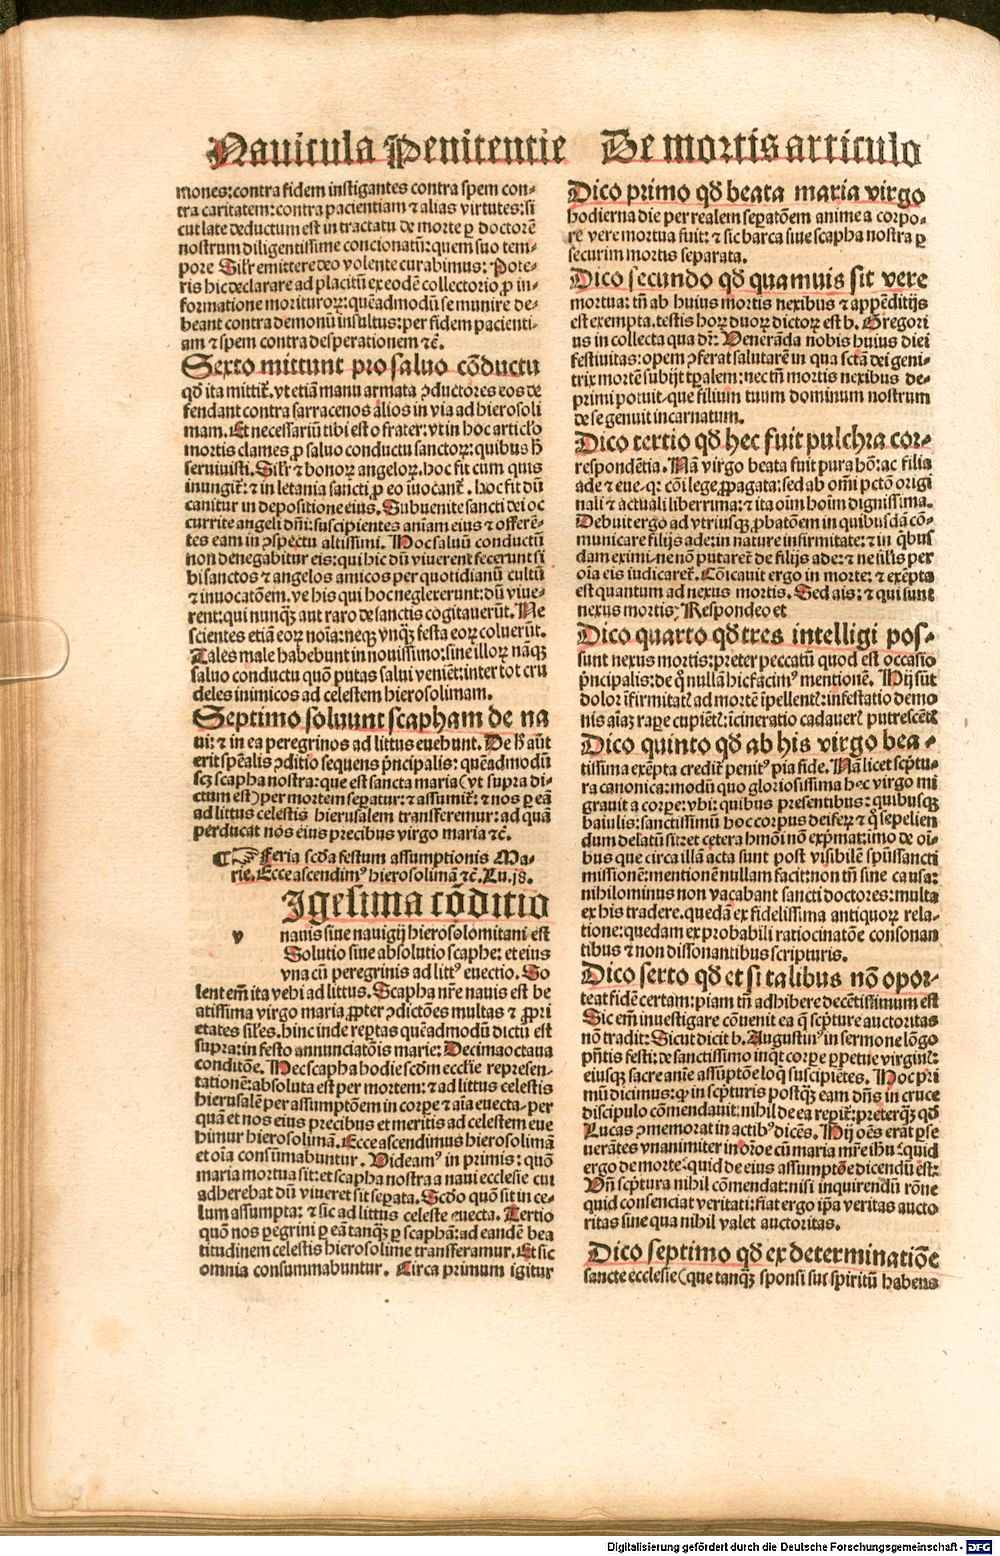 Nauicula Penitentie De mortis articulo
mones: contra fidem instigantes contra spem con-
tra caritatem: contra pacientiam ⁊ alias virtutes: si
cut late deductum est in tractatu de morte ꝑ doctorē
nostrum diligentissime concionatū: quem suo tem-
pore Silr emittere deo volente curabimus: Pote-
ris hic declarare ad placitū ex eodē collectorio ꝓ in-
formatione morituroꝝ: quēadmodū se munire de-
beant contra demonū insultus: per fidem pacienti-
am ⁊ spem contra desperationem ⁊c̄.
Sexto mittunt pro saluo cōductu
qd̄ ita mittit̄. vt etiā manu armata ꝯductores eos de
fendant contra sarracenos a̅lios in via ad hierosoli
mam. Et necessariū tibi est o frater: vt in hoc articlo
mortis clames ꝓ saluo conductu sanctoꝝ: quibus h̄
seruiuisti. Silr̄ ⁊ bonoꝝ angeloꝝ. hoc fit cum quis
inungit̄: ⁊ in letania sancti ꝓ eo īuocant̄. hoc fit dū
canitur in depositione eius. Subuenite sancti dei oc
currite angeli dn̄i: suscipientes aīam eius ⁊ offerē-
tes eam in ꝯspectu altissimi. Hoc saluū conductū
non denegabitur eis: qui hic dū viuerent fecerunt si
bi sanctos ⁊ angelos amicos per quotidianū cultū
⁊ inuocatōem. ve his qui hoc neglexerunt: dū viue-
rent: qui nunqȝ aut raro de sanctis cogitauerūt. Ne
scientes etiā eoꝝ noīa: neqȝ vnqȝ festa eoꝝ coluerūt.
Tales male habebunt in nouissimo: sine illoꝝ nāqȝ
saluo conductu quō putas salui veniēt: inter tot cru
deles inimicos ad celestem hierosolimam.
Septimo soluunt scapham de na
ui: ⁊ in ea peregrinos ad littus euehunt. De h̄ aūt
erit spēalis ꝯditio sequens p̄ncipalis: quēadmodū
scȝ scapha nostra: que est sancta maria (vt supra di-
ctum est) per mortem seꝑatur: ⁊ assumit̄: ⁊ nos ꝑ eā
ad littus celestis hierusalem transferemur: ad quā
perducat nos eius precibus virgo maria ⁊c̄.
¶ ☞ Feria scd̄a festum assumptionis Ma-
rie. Ecce ascendimꝰ hierosolimā ⁊c̄. Lu. j8.
v Igesima cōditio
nauis siue nauigij hierosolomitani est
Solutio siue absolutio scaphe: et eius
vna cū peregrinis ad littꝰ euectio. So
lent em̄ ita vehi ad littus. Scapha nr̄e nauis est be
atissima virgo maria ꝓpter ꝯdictōes multas ⁊ ꝓpri
etates siles. hinc inde reꝑtas quēadmodū dictū est
supra: in festo annunciatōis marie: Decimaoctaua
conditōe. Hec scapha hodie scd̄m eccl̄ie represen-
tationē: absoluta est per mortem: ⁊ ad littus celestis
hierusalē per assumptōem in corꝑe ⁊ aīa euecta. per
quā et nos eius precibus et meritis ad celestem eue
himur hierosolimā. Ecce ascendimus hierosolimā
et oīa consūmabuntur. Videamꝰ in primis: quō
maria mortua sit: et scapha nostra a naui ecclesie cui
adherebat dū viueret sit seꝑata. Scd̄o quō sit in ce-
lum assumpta: ⁊ sic ad littus celeste euecta. Tertio
quō nos ꝑegrini ꝑ eā tanqȝ ꝑ scaphā: ad eandē bea
titudinem celestis hierosolime transferamur. Et sic
omnia consummabuntur. Circa primum igitur
Dico primo qd̄ beata maria virgo
hodierna die per realem seꝑatōem anime a corpo-
re vere mortua fuit: ⁊ sic barca siue scapha nostra ꝑ
securim mortis separata.
Dico secundo qd̄ quamuis sit vere
mortua: tn̄ ab huius mortis nexibus ⁊ appēditijs
est exempta. testis hoꝝ duoꝝ dictoꝝ est b. Gregori
us in collecta qua dr̄: Venerāda nobis huius diei
festiuitas: opem ꝯferat salutarē in qua sctā dei geni-
trix mortē subijt tꝑalem: nec tn̄ mortis nexibus de-
primi potuit. que filium tuum dominum nostrum
de se genuit incarnatum.
Dico tertio qd̄ hec fuit pulchra cor-
respondētia. Nā virgo beata fuit pura hō: ac filia
ade ⁊ eue. qꝛ cōi lege ꝓpagata: sed ab om̄i pctō origi
nali ⁊ actuali liberrima: ⁊ ita oīm hoīm dignissima.
Debuit ergo ad vtriusqȝ ꝓbatōem in quibusdā cō-
municare filijs ade: in nature infirmitate: ⁊ in qͥbus
dam eximi. ne nō putaret̄ de filijs ade: ⁊ ne illis per
oīa eis iudicaret̄. Cōicauit ergo in morte: ⁊ exēpta
est quantum ad nexus mortis. Sed ais: ⁊ qui sunt
nexus mortis. Respondeo et
Dico quarto qd̄ tres intelligi pos-
sunt nexus mortis: preter peccatū quod est occasio
p̄ncipalis: de qͦ nullā hic facimꝰ mentionē. Hij sūt
doloꝝ īfirmitatꝭ ad mortē īpellentꝭ: infestatio demo
nis aīaȝ raꝑe cupiētꝭ: īcineratio cadaueꝝ putrescētꝭ
Dico quinto qd̄ ab his virgo bea-
tissima exēpta credit̄ penitꝰ pia fide. Nā licet scp̄tu-
ra canonica: modū quo gloriosissima hec virgo mi
grauit a corꝑe: vbi: quibus presentibus: quibusqȝ
baiulis: sanctissimū hoc corpus deiferꝝ ⁊ qͦ sepelien
dum delatū sit: et cetera hmōi nō exp̄mat: imo de oī-
bus que circa illā acta sunt post visibilē spūssancti
missionē: mentionē nullam facit: non tn̄ sine causa:
nihilominus non vacabant sancti doctores: multa
ex his tradere. quedā ex fidelissima antiquoꝝ rela-
tione: quedam ex probabili ratiocinatōe consonan
tibus ⁊ non dissonantibus scripturis.
Dico serto qd̄ et si talibus nō opor-
teat fidē certam: piam tn̄ adhibere decētissimum est
Sic em̄ inuestigare cōuenit ea q̄ scp̄ture auctoritas
nō tradit: Sicut dicit b. Augustinꝰ in sermone lōgo
pn̄tis festi: de sanctissimo inqͥt corꝑe ꝑpetue virginꝭ:
eiusqȝ sacre anīe assūptōe loqͥ suscipiētes. Hoc pri
mū dicimus: ꝙ in scp̄turis postqȝ eam dn̄s in cruce
discipulo cōmendauit: nihil de ea reꝑit̄: preterqȝ qd̄
Lucas ꝯmemorat in actibꝰ dicēs. Hij oēs erāt ꝑse
uerātes vnanimiter in or̄oe cū maria mr̄e ihu: quid
ergo de morte: quid de eius assumptōe dicendū est:
Vn̄ scp̄tura nihil cōmendat: nisi inquirendū rōne
quid consenciat veritati: fiat ergo ip̄a veritas aucto
ritas sine qua nihil valet auctoritas.
Dico septimo qd̄ ex determinatiōe
sancte ecclesie (que tanqȝ sponsi sui spiritū habens
Digitalisierung gefördert durch die Deutsche Forschungsgemeinschaft - DFG